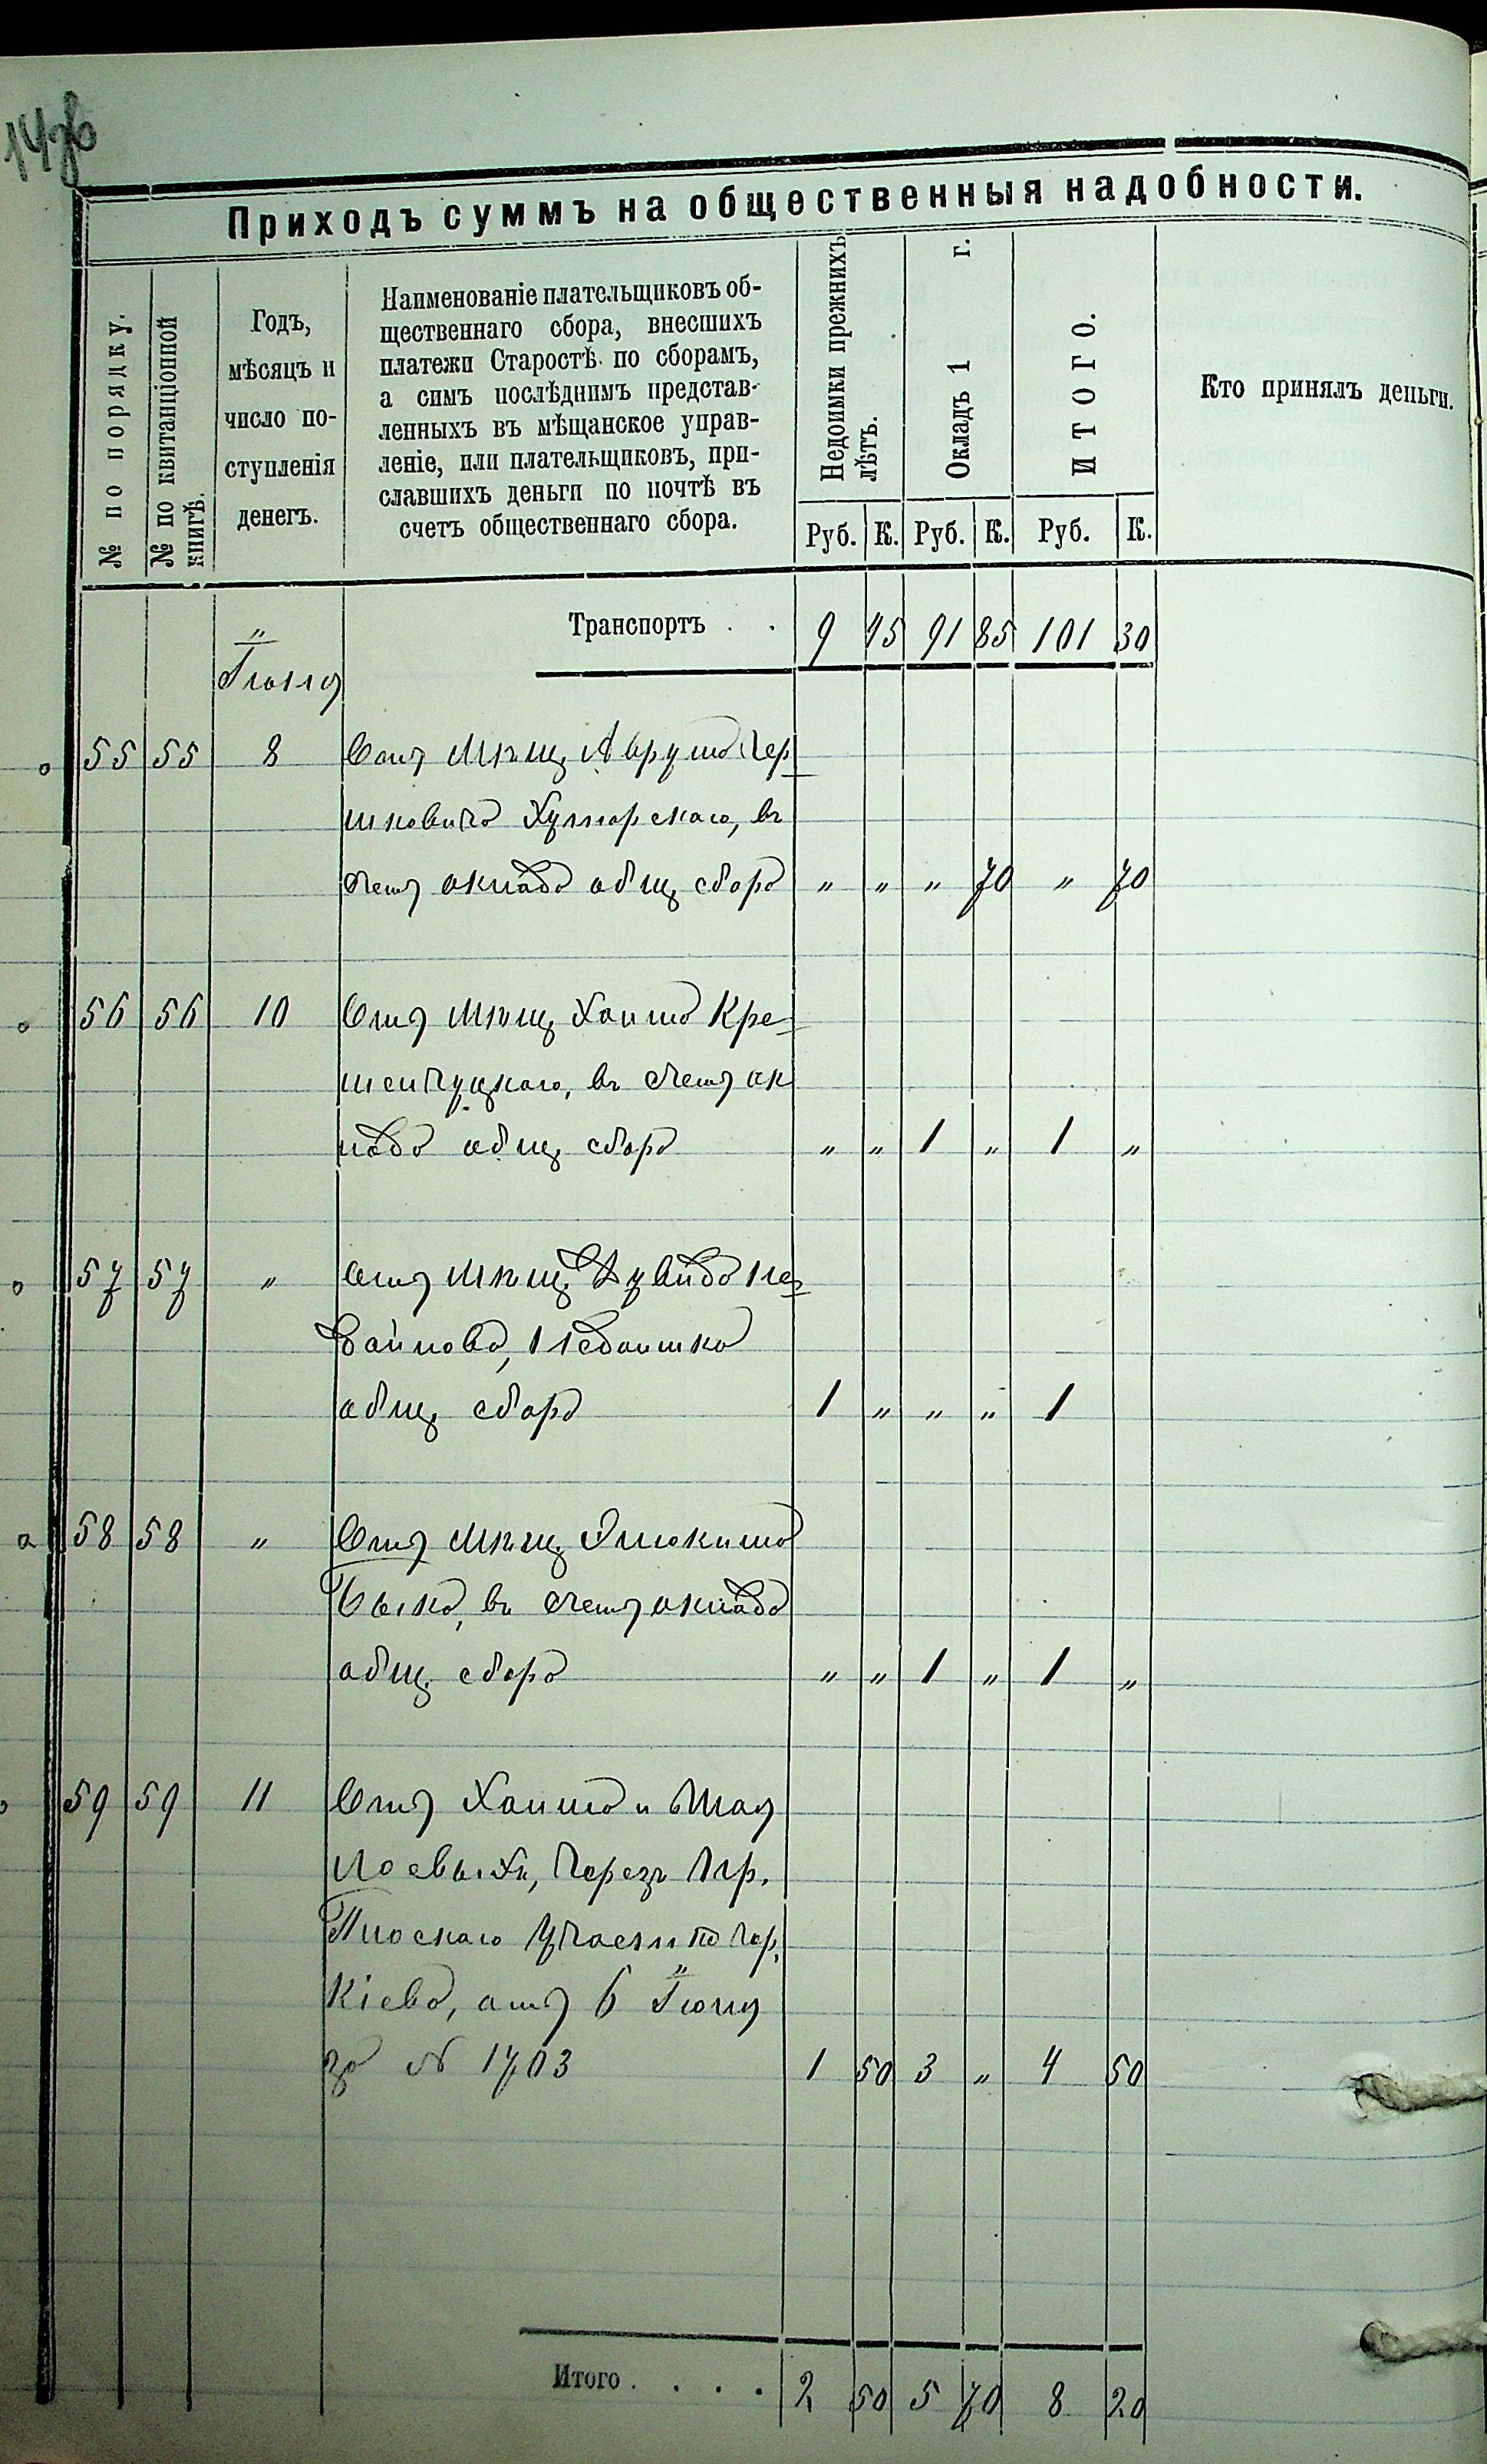 147об
Приходъ суммъ на общественныя надобности.
№ по порядку.
№ по квитанціонной книгѣ.
Годъ,
мѣсяцъ и
число по-
ступленія
денегъ.
Наименованіе плательщиковъ об-
щественнаго сбора, внесшихъ
платежи Старостѣ по сборамъ,
а симъ послѣднимъ представ-
ленныхъ въ мѣщанское управ-
леніе, или плательщиковъ, при-
славшихъ деньги по почтѣ въ
счетъ общественнаго сбора.
Недоимки прежнихъ лѣтъ.
Окладъ 1 г.
ИТОГО.
Кто принялъ деньги.
Руб. К. Руб. К. Руб. К.
Транспортъ . . 9 45 91 85 101 30
Іюня
55 55 8 Отъ Мѣщ. Аврума Гер
шковича Хуторскаго, въ
счетъ оклада общ. сбора " " " 70 " 70
56 56 10 Отъ Мѣщ. Хаима Кре-
менчуцкаго, въ счетъ ок
лада общ. сбора " " 1 " 1 "
57 57 " Отъ Мѣщ.
недоимка
общ. сбора 1 " " " 1
58 58 " Отъ Мѣщ.
Быка, въ счетъ оклада
общ. сбора " " 1 " 1 "
59 59 11 Отъ Хаима и
чрезъ Пр.
Плоскаго участка гор.
Кіева, отъ 6 Іюня
за № 1703 1 50 3 " 4 50
Итого . . . . 2 50 5 70 8 20